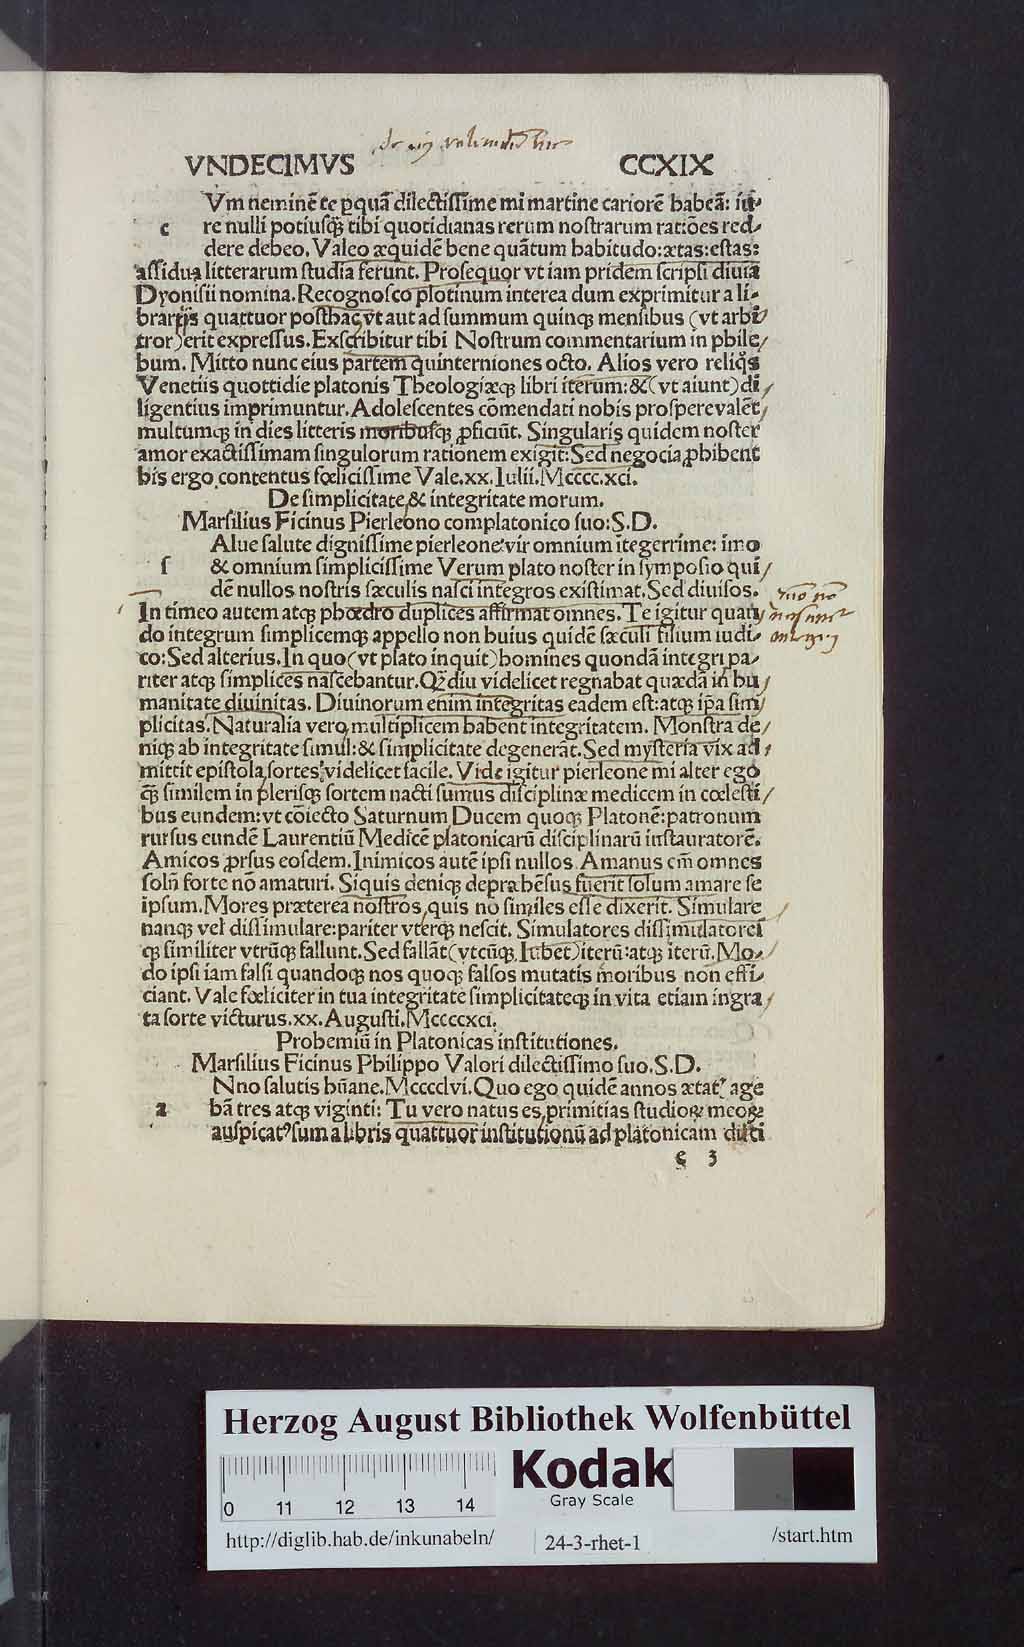 VNDECIMVS CCXIX
Vm neminē te p̱quā dilectiſſime mi martine cariorē habeā: iu⸗
c re nulli potiuſq̄ꝫ tibi quotidianas rerum noſtrarum ratiões red⸗
dere debeo. Valeo æquidē bene quātum habitudo: ætas: eſtas:
aſſidua litterarum ſtudia ferunt. Proſequor vt iam pridem ſcripſi diuia
Dyoniſii nomina. Recognoſco plotinum interea dum exprimitur a li⸗
brariis quattuor poſthac vt aut ad ſummum quinqꝫ menſibus (vt arbi
tror) erit expreſſus. Exſcribitur tibi Noſtrum commentarium in phile/
bum. Mitto nunc eius partem quinterniones octo. Alios vero reliq̇s
Venetiis quottidie platonis Theologiæqꝫ libri iterum: &(vt aiunt) di/
ligentius imprimuntur. Adoleſcentes cōmendati nobis proſpere valēt/
multumqꝫ in dies litteris moribuſqꝫ ꝓficiūt. Singularis quidem noſter
amor exactiſſimam ſingulorum rationem exigit: Sed negocia ꝓhibent
his ergo contentus fœliciſſime Vale. xx. Iulii. Mcccc.xci.
De ſimplicitate & integritate morum.
Marſilius Ficinus Pierleono complatonico ſuo: S.D.
Alue ſalute digniſſime pierleone: vir omnium itegerrime: imo
ſ & omnium ſimpliciſſime Verum plato noſter in ſympoſio qui/
dē nullos noſtris ſæculis naſci integros exiſtimat. Sed diuiſos.
In timeo autem atqꝫ phœdro duplices affirmat omnes. Te igitur quan/
do integrum ſimplicemqꝫ appello non huius quidē ſæculi filium iudi⸗
co: Sed alterius. In quo (vt plato inquit) homines quondā integri pa⸗
riter atqꝫ ſimplices naſcebantur. Qꝫdiu videlicet regnabat quædā in hu/
manitate diuinitas. Diuinorum enim integritas eadem eſt: atqꝫ ip̄a ſim/
plicitas. Naturalia vero multiplicem habent integritatem. Monſtra de/
niqꝫ ab integritate ſimul: & ſimplicitate degenerāt. Sed myſteria vix ad/
mittit epiſtola ſortes videlicet facile. Vide igitur pierleone mi alter ego
q̄ꝫ ſimilem in pleriſqꝫ ſortem nacti ſumus diſciplinæ medicem in cœleſti/
bus eundem: vt cōiecto Saturnum Ducem quoqꝫ Platonē: patronum
rurſus eundē Laurentiū Medicē platonicarū diſciplinarū inſtauratorē.
Amicos ꝓrſus eoſdem. Inimicos autē ipſi nullos. Amanus em̄ omnes
ſoln̄ forte nō amaturi. Siquis deniqꝫ deprahēſus fuerit ſolum amare ſe
ipſum. Mores præterea noſtros quis nō ſimiles eſſe dixerit. Simulare
nanqꝫ vel diſſimulare: pariter vterqꝫ neſcit. Simulatores diſſimulatoreſ
qꝫ ſimiliter vtrūqꝫ fallunt. Sed fallāt (vtcūqꝫ lubet) iterū: atqꝫ iterū. Mo⸗
do ipſi iam falſi quandoqꝫ nos quoqꝫ falſos mutatis moribus non effi⸗
ciant. Vale fœliciter in tua integritate ſimplicitateqꝫ in vita etiam ingra/
ta ſorte victurus. xx. Auguſti. Mccccxci.
Prohemiū in Platonicas inſtitutiones.
Marſilius Ficinus Philippo Valori dilectiſſimo ſuo. S.D.
Nno ſalutis hūane. Mcccclvi. Quo ego quidē annos ætatꝭ age
a bā tres atqꝫ viginti: Tu vero natus es primitias ſtudioꝝ meoꝝ
auſpicatꝰ ſum a libris quattuor inſtitutionū ad platonicam diſci
e 3
Herzog August Bibliothek Wolfenbüttel
Kodak
Gray Scale
0 11 12 13 14
http://diglib.hab.de/inkunabeln/ 24-3-rhet-1 /start.htm